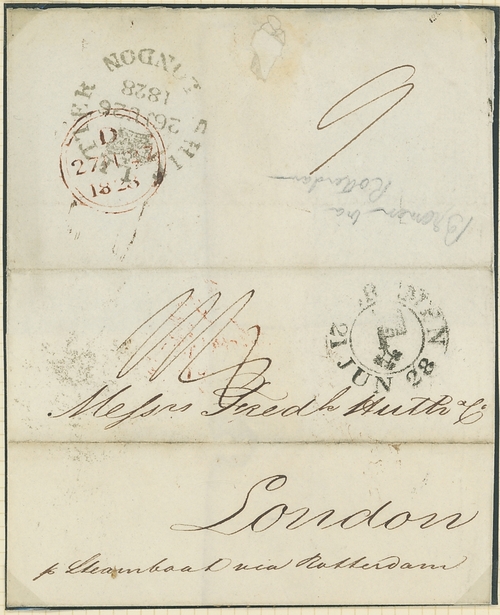 SHIP LETTER LONDON
26 JU 26
1828
D
27 JU 27
1828
6
Bremen via
Rotterdam
21 JUN 28
Messrs Fredk Huth & Co
London
p Steamboat via Rotterdam